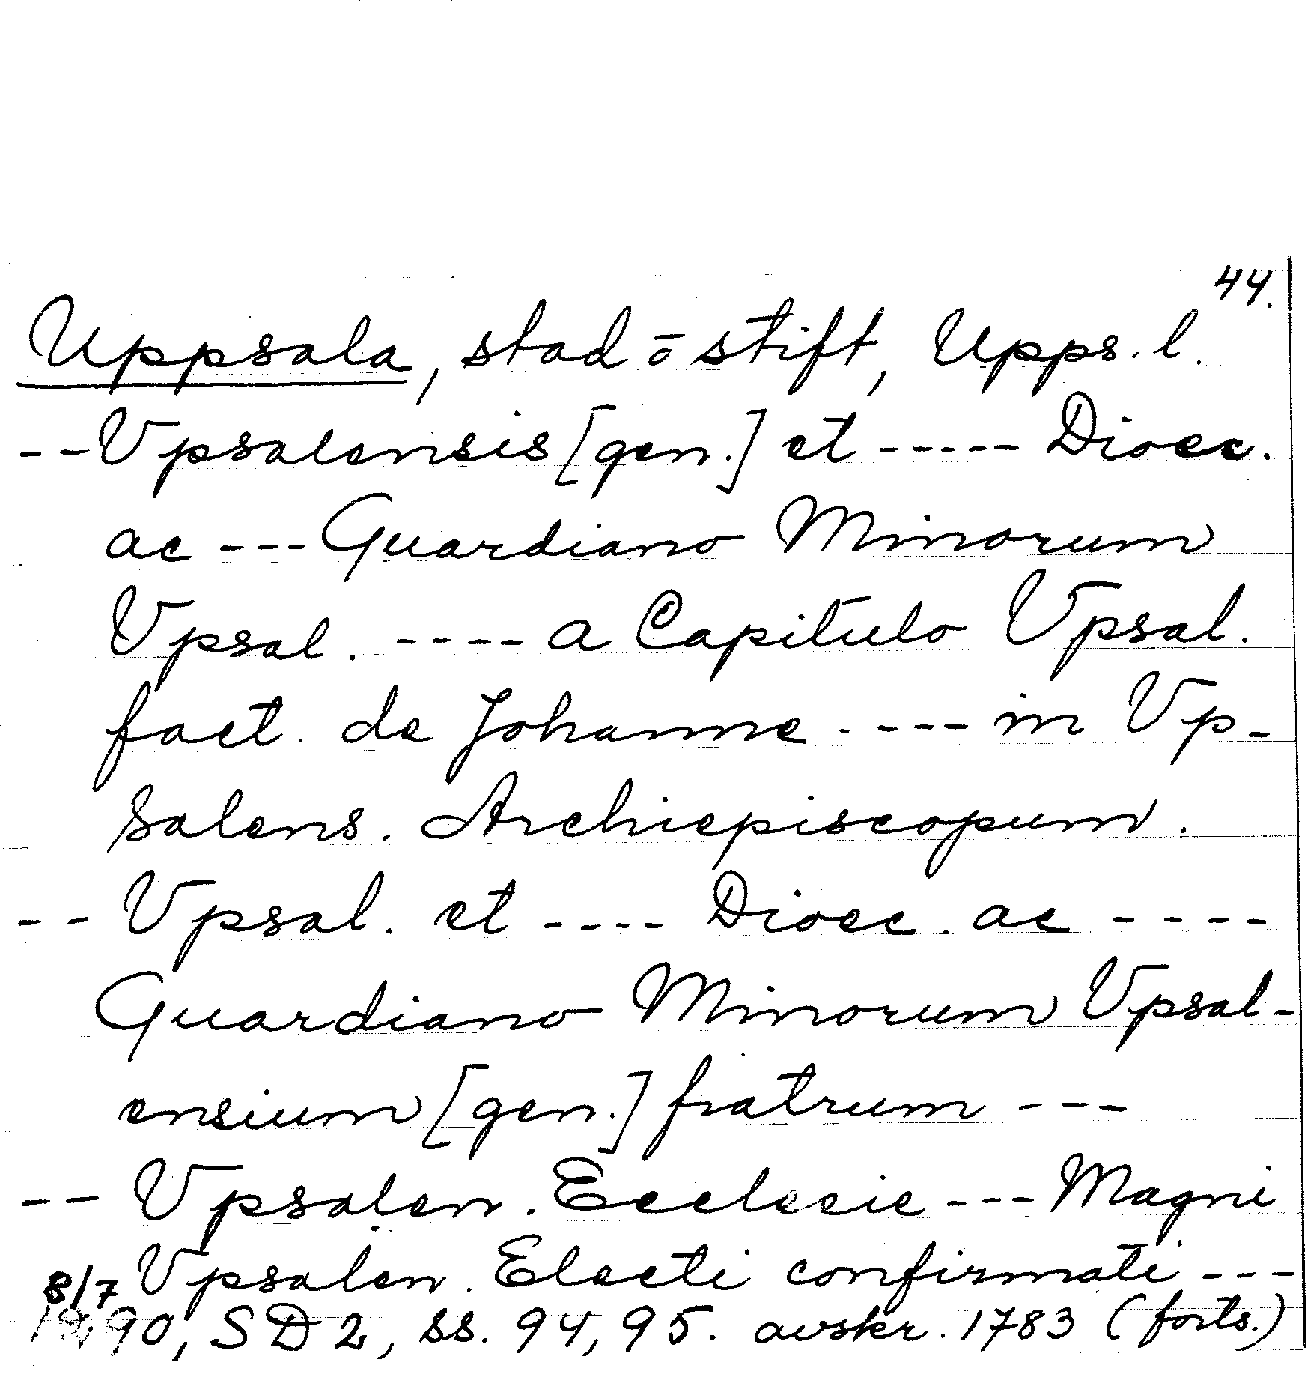 44.
Uppsala, stad ō stift, Upps. l.
-- Vpsalensis [gen.] et ----- Dioec.
ac --- Guardiano Minorum
Vpsal. ---- a Capitulo Vpsal.
fact. de Johanne ---- in Vp-
salens. Archiepiscopum.
-- Vpsal. et ---- Dioec. ac ----
Guardiano Minorum Vpsal-
ensium [gen.] fratrum ---
-- Vpsalen. Ecclecie --- Magni
Vpsalen. Electi confirmati ---
8/7
90, SD 2, ss. 94, 95. avskr. 1783 (forts.)